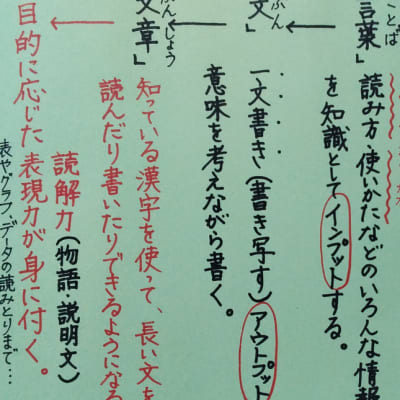 ことば
言葉」
読み方・使いかたなどのいろんな情報
を知識としてインプットする。
ぶん
文」
一文書き(書き写す)アウトプット
意味を考えながら書く。
ぶんしょう
文章」
知っている漢字を使って、長い文を
読んだり書いたりできるようになる
読解力(物語・説明文)
目的に応じた表現力が身に付く。
表やグラフ、データの読みとりまで…